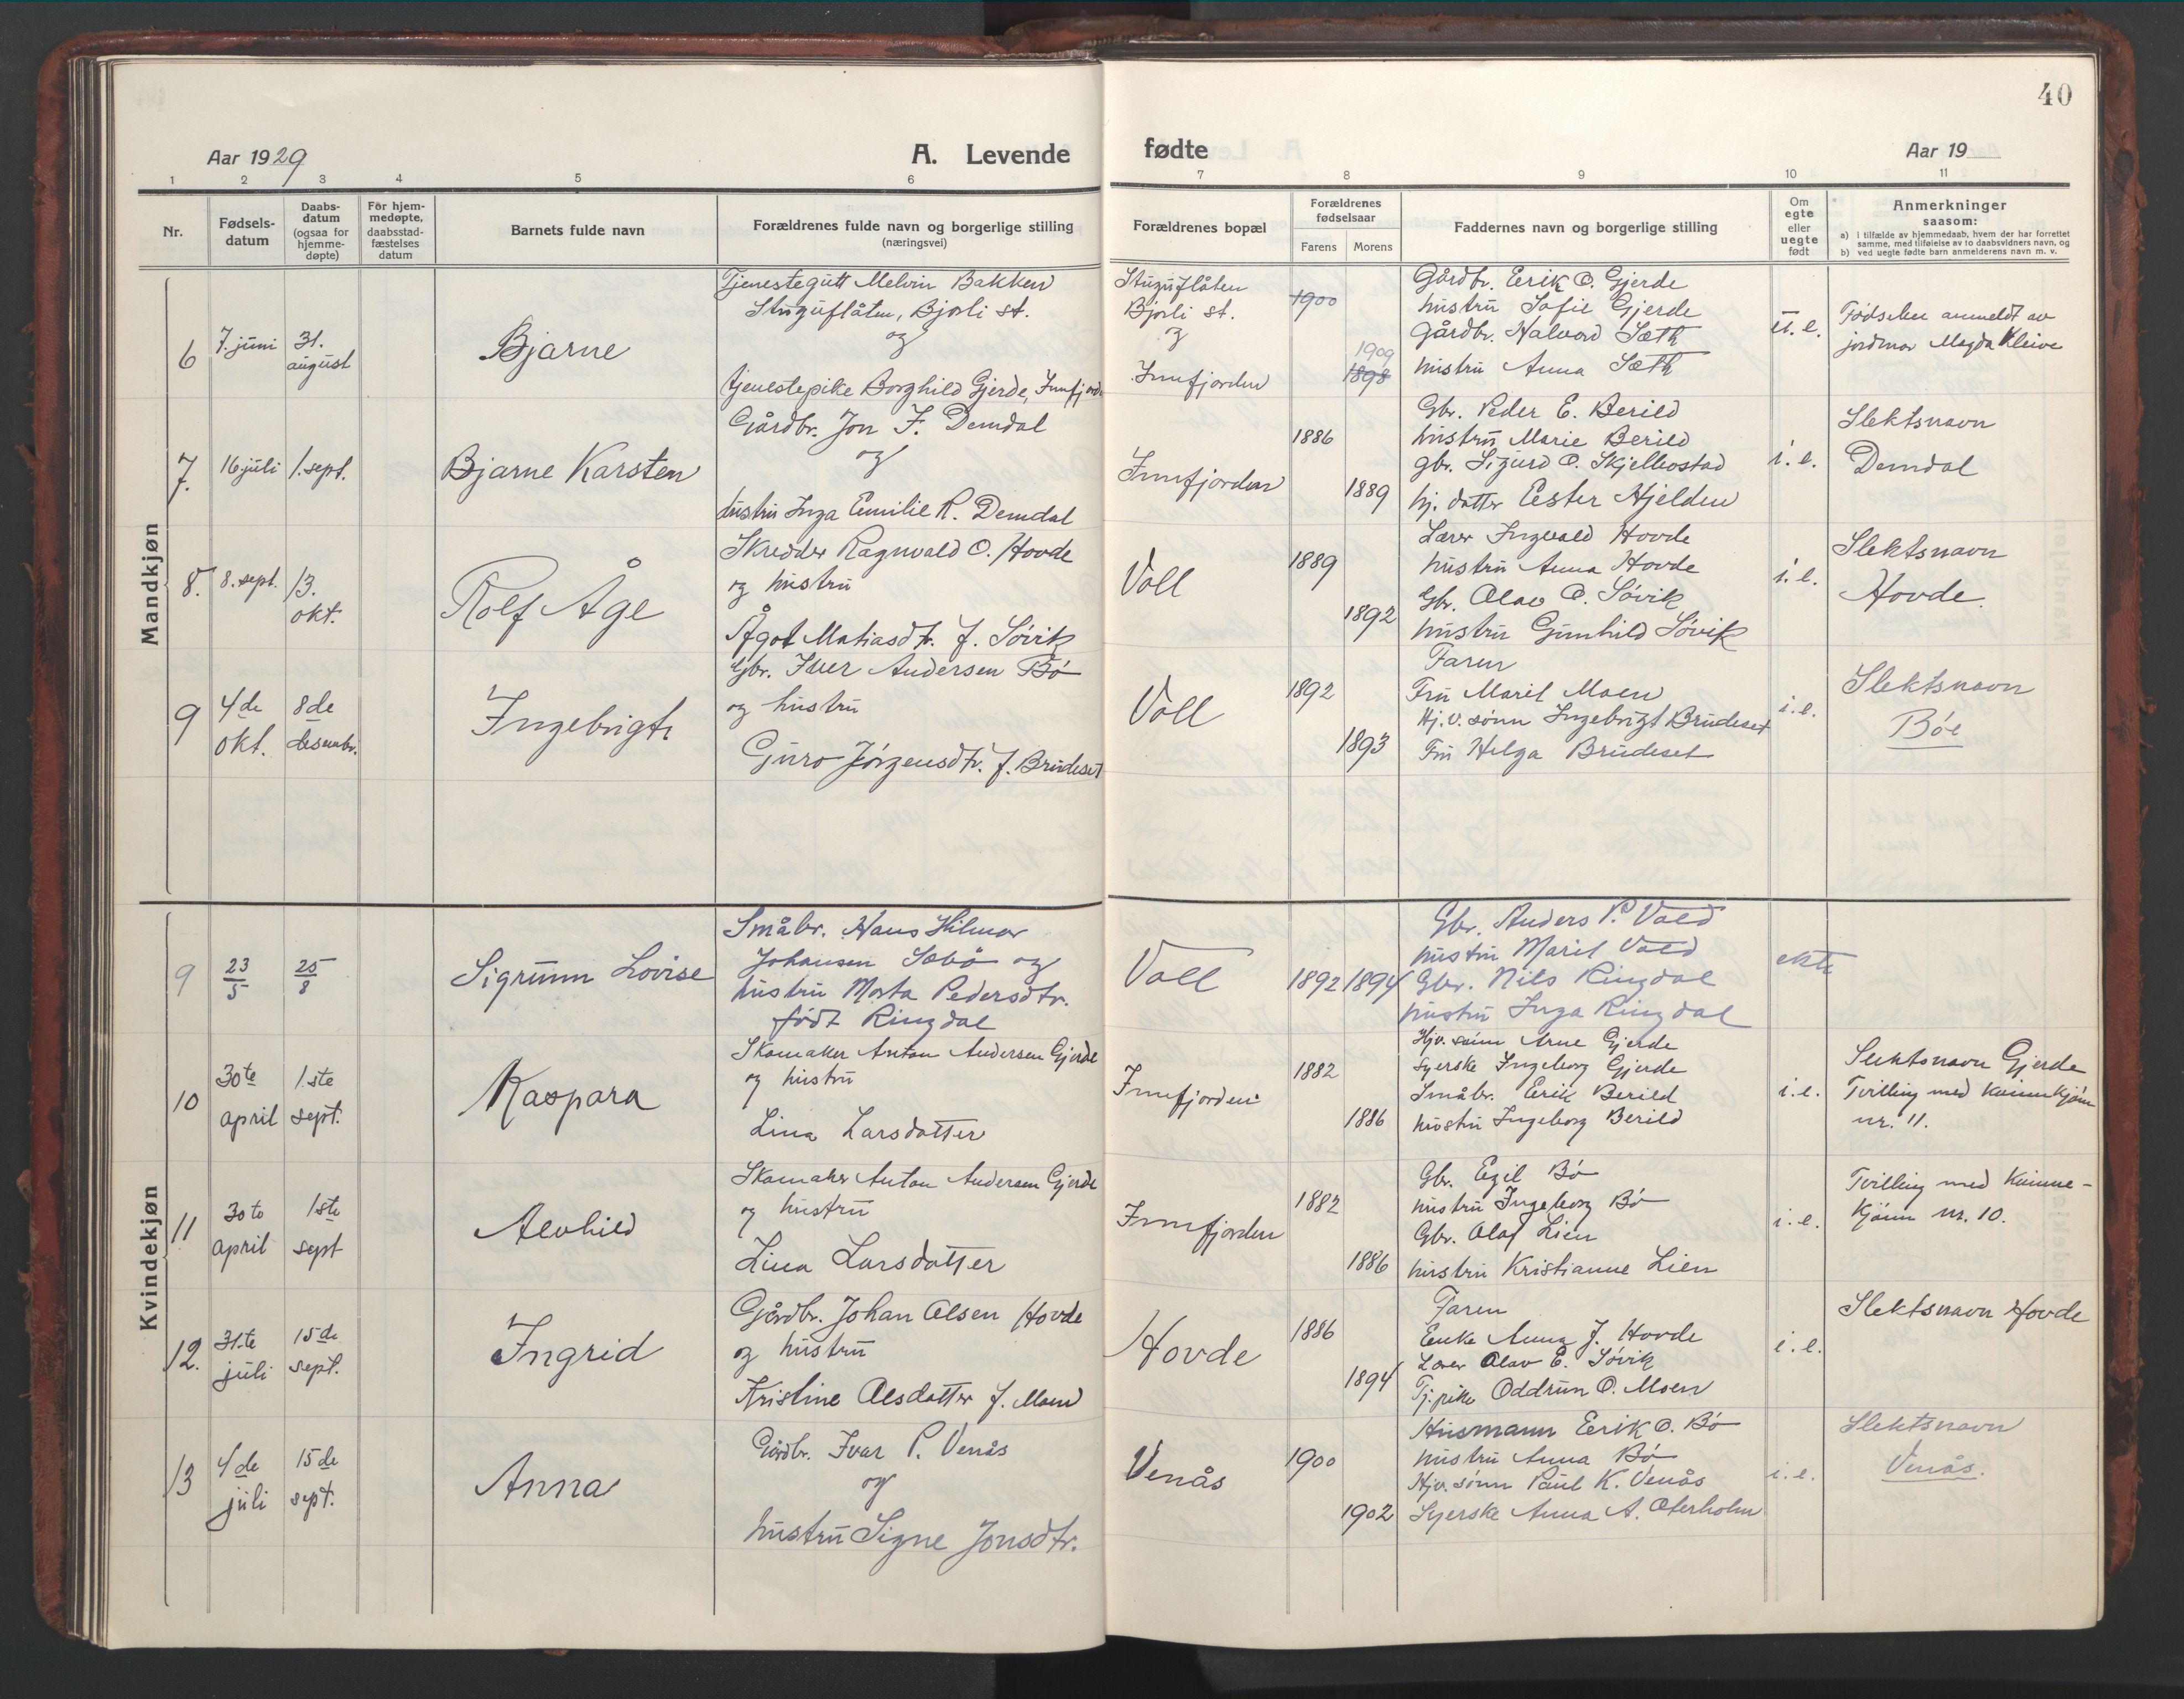 40
Aar 1929
A. Levende fødte
Aar 19
1 2 3 4 5 6 7 8 9 10 11
Nr.
Fødsels-
datum
Daabs-
datum
(ogsaa for
hjemme-
døpte)
För hjem-
medøpte,
daabsstad-
fæstelses
datum
Barnets fulde navn
Forældrenes fulde navn og borgerlige stilling
(næringsvei)
Forældrenes bopæl
Forældrenes
fødselsaar
Farens Morens
Faddernes navn og borgerlige stilling
Om
egte
eller
uegte
født
Anmerkninger
saasom:
a) i tilfælde av hjemmedaab, hvem der har forrettet
samme, med tilføielse av to daabsvidners navn, og
b) ved uegte fødte barn anmelderens navn m. v.
Mandkjøn
6
7. juni
31.
august
Bjarne
Tjenestegutt Melvin Bakken
Stuguflåten, Bjorli st.
og
tjenestepike Borghild Gjerde, Innfjord.
Stuguflåten
Bjorli st.
og
Innfjorden
1900
1909
1898
Gårdbr. Eerik O. Gjerde
hustru Sofie Gjerde
Gårdbr. Halvord Sæth
hustru Anna Sæth
u. e.
Fødselen anmeldt av
jordmor Magda Kleive
7.
16 juli
1. sept.
Bjarne Karsten
Gårdbr. Jon F. Demdal
og
hustru Inga Emilie R. Demdal
Innfjorden
1886
1889
Gbr. Peder E. Berild
hustru Marie Berild
gbr. Sigurd O. Skjelbostad
hj. datter Eester Hjelden
i. e.
Slektsnavn
Demdal
8.
8. sept.
13.
okt.
Rolf Åge
Skredder Ragnvald O. Hovde
og hustru
Ågot Matiasdtr. f. Søvik
Voll
1889
1892
Lærer Ingvald Hovde
hustru Anna Hovde
Gbr. Olav O. Søvik
hustru Gunhild Søvik
i. e.
Slektsnavn
Hovde.
9
4de
okt.
8de
desembr.
Ingebrigt
Gbr. Iver Andersen Bø
og hustru
Guro Jørgensdtr. f. Brudeset
Voll
1892
1893
Faren
Fru Marit Moen
Hj.v. sønn Ingebrigt Brudeset
Fru Helga Brudeset
i. e.
Slektsnavn
Bøe
Kvindekjøn
9
23/5
25/8
Sigrunn Lovise
Småbr. Hans Hilmar
Johansen Sæbø og
hustru Marta Pedersdtr.
født Ringdal
Voll
1892 1894
Gbr. Anders P. Vold
hustru Marit Vold
Gbr. Nils Ringdal
hustru Inga Ringdal
ekte
10
30te
april
1ste
sept.
Kaspara
Skomaker Anton Andersen Gjerde
og hustru
Lina Larsdatter
Innfjorden
1882
1886
Hjv. sønn Arne Gjerde
syerske Ingeborg Gjerde
Småbr. Erik Berild
hustru Ingeborg Berild
i. e.
Slektsnavn Gjerde
Tvilling med kvinnkjønn
nr. 11.
11
30te
april
1ste
sept
Alvhild
Skomaker Anton Andersen Gjerde
og hustru
Lina Larsdatter
Innfjorden
1882
1886
Gbr. Egil Bø
hustru Ingeborg Bø
Gbr. Olaf Lien
hustru Kristianne Lien
i. e.
Tvilling med kvinne-
kjønn nr. 10.
12.
31.te
juli
15de
sept.
Ingrid
Gårdbr. Johan Olsen Hovde
og hustru
Kristine Olsdatter f. Moen
Hovde
1886
1894
Faren
Enke Anna J. Hovde
Lærer Olav E. Søvik
Tj. pike Oddrun O. Moen
i. e.
Slektsnavn Hovde
13
4de
juli
15de
sept.
Anna
Gårdbr. Ivar P. Venås
og
hustru Signe Jonsdtr.
Venås
1900
1902
Husmann Eerik O. Bø
hustru Anna Bø
Hjv. sønn Paul K. Venås
Syerske Anna A. Oterholm
i. e.
Slektsnavn
Venås.